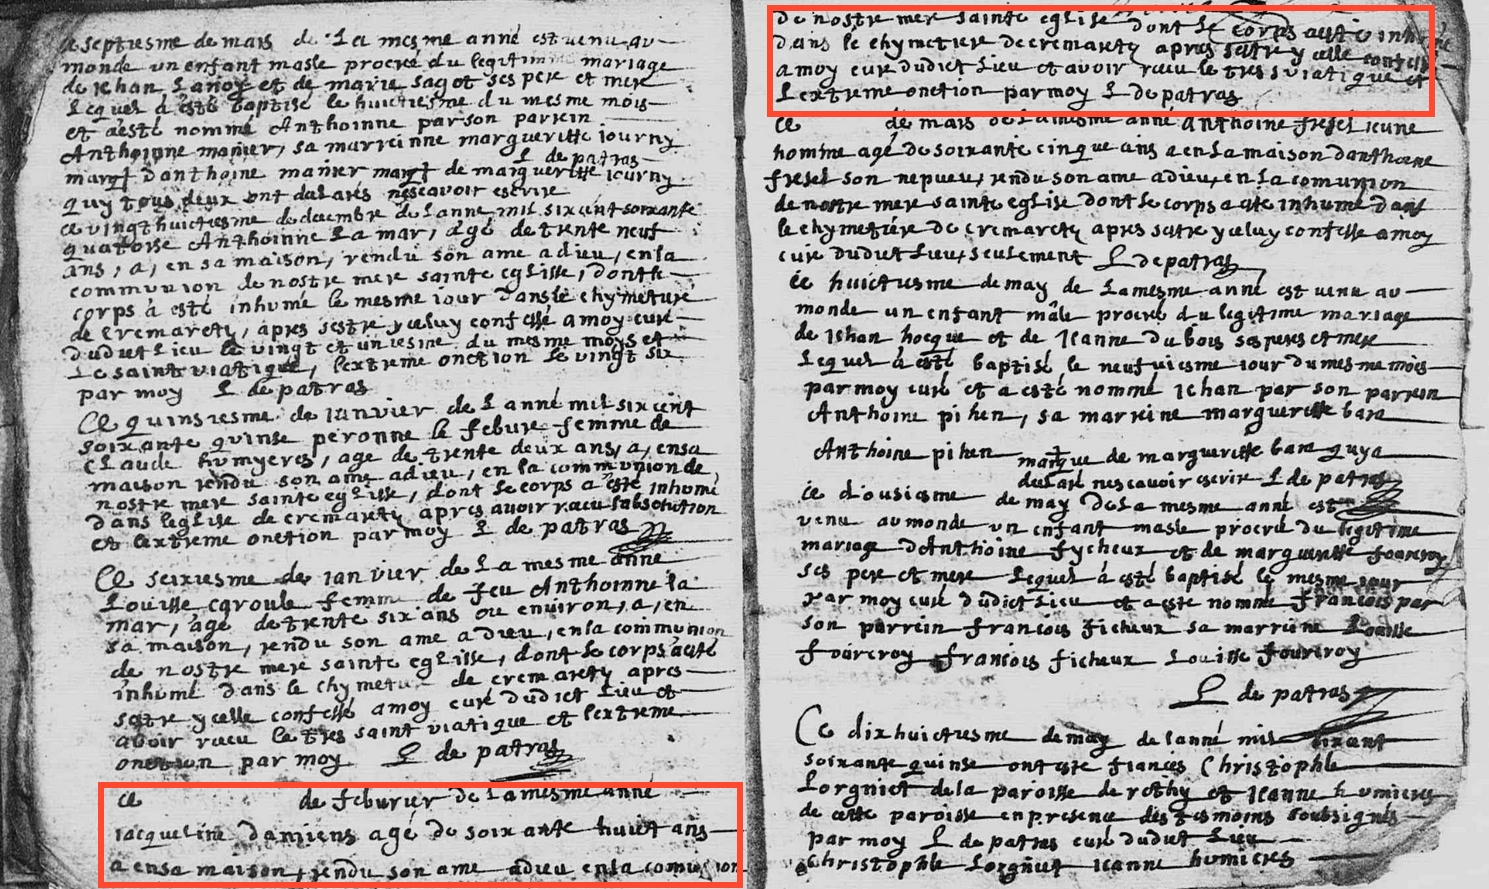 a septiesme de mars de La mesme anné est venu au
monde un enfant masle procreé du legitime mariage
de Jehan Lanoy et de marie sagot ses pere et mere
Lequel a esté baptisé le huictiesme du mesme mois
et a esté nommé Anthoinne par son parrin
Anthoinne manier, sa marreinne margueritte iourny
L de patras
marq d'anthoine manier marq de margueritte iourny
quy tous deux ont declarés nescavoir escrire
ce vingt huictiesme de decembre de Lanne mil six cent soixante
quatorse Anthoinne La mar, âgé de trente neuf
ans, a, en sa maison, rendu son ame a dieu, en la
communion de nostre mere sainte eglisse, dont le
corps à esté inhumé le mesme iour dans le chymetiere
de Cremarety, apres s'estre yceluy confessé a moy curé
dudict Lieu le vingt et uniesme du mesme moys et
Le saint viatique, l'extreme onction le vingt six
par moy L de patras
Ce quinsiesme de ianvier de L'anné mil six cent
soixante quinse peronne le febure femme de
Claude humyeres, age de trente deux ans, a, en sa
maison rendu son ame adieu, en la communion de
nostre mere sainte eglisse, dont le corps a esté inhumé
dans l'eglise de cremarety apres avoir raceu l'absolution
et l'extreme onction par moy L de patras
Ce seixiesme de ianvier de La mesme anne
Louisse caroule femme de feu Anthoinne la
mar, âgé de trente six ans ou environ, a, en
sa maison, rendu son ame a Dieu, en la communion
de nostre mere sainte eglisse, dont le corps a esté
inhumé dans le chymetiere de cremarety apres
sestre ycelle confessé a moy curé dudict Lieu et
avoir raceu le tres saint viatique et l'extreme
onction par moy L de patras
ce de feburier de La mesme anné
iacqueline damiens agé de soixante huict ans
a en sa maison, rendu son ame adieu en la comunion
de nostre mere sainte eglise dont le corps a esté inhumé
dans le chymetiere de cremarety apres sestre ycelle confessé
a moy curé dudict Lieu et avoir raceu le tres s viatique et
L'extreme onction par moy L de patras
Ce de mars de La mesme anné anthoine fresel ieune
homme agé de soixante cinque ans a en La maison danthoine
fresel son nepueu, rendu son ame a dieu, en la comunion
de nostre mere sainte eglise dont le corps a esté inhumé dans
le chymetiére de cremarety apres sestre yceluy confessé a moy
curé dudict Lieu, seulement L de patras
Ce huictiesme de may de La mesme anné est venu au
monde un enfant mâle procreé du legitime mariage
de Jehan hocque et de Jeanne du bois ses peres et mere
Lequel à esté baptisé le neufuiesme iour du mesme mois
par moy curé et a esté nommé Jehan par son parrein
Anthoine pihen, sa marreine margueritte bara
Anthoine pihen marque de margueritte bara quy a
declaré nescavoir escrire L de patras
Ce dousiesme de may de La mesme anné est
venu au monde un enfant masle procreé du legitime
mariage d'Anthoine fycheux et de margueritte fourcroy
ses pere et mere Lequel à esté baptisé le mesme iour
par moy curé dudict Lieu et a esté nommé francois par
son parrein francois ficheux sa marreine Louisse
fourcroy francois ficheux Louisse fourcroy
L de patras
Ce dixhuictiesme de may de lanné mil sixcent
soixante quinse ont esté fiancés Christophle
Lorgniet de la paroisse de rethy et Jeanne humieres
de cette paroisse en presence des tesmoins soubsignés
par moy L de patras curé dudict Lieu
Christophle Lorgnut ieanne humieres